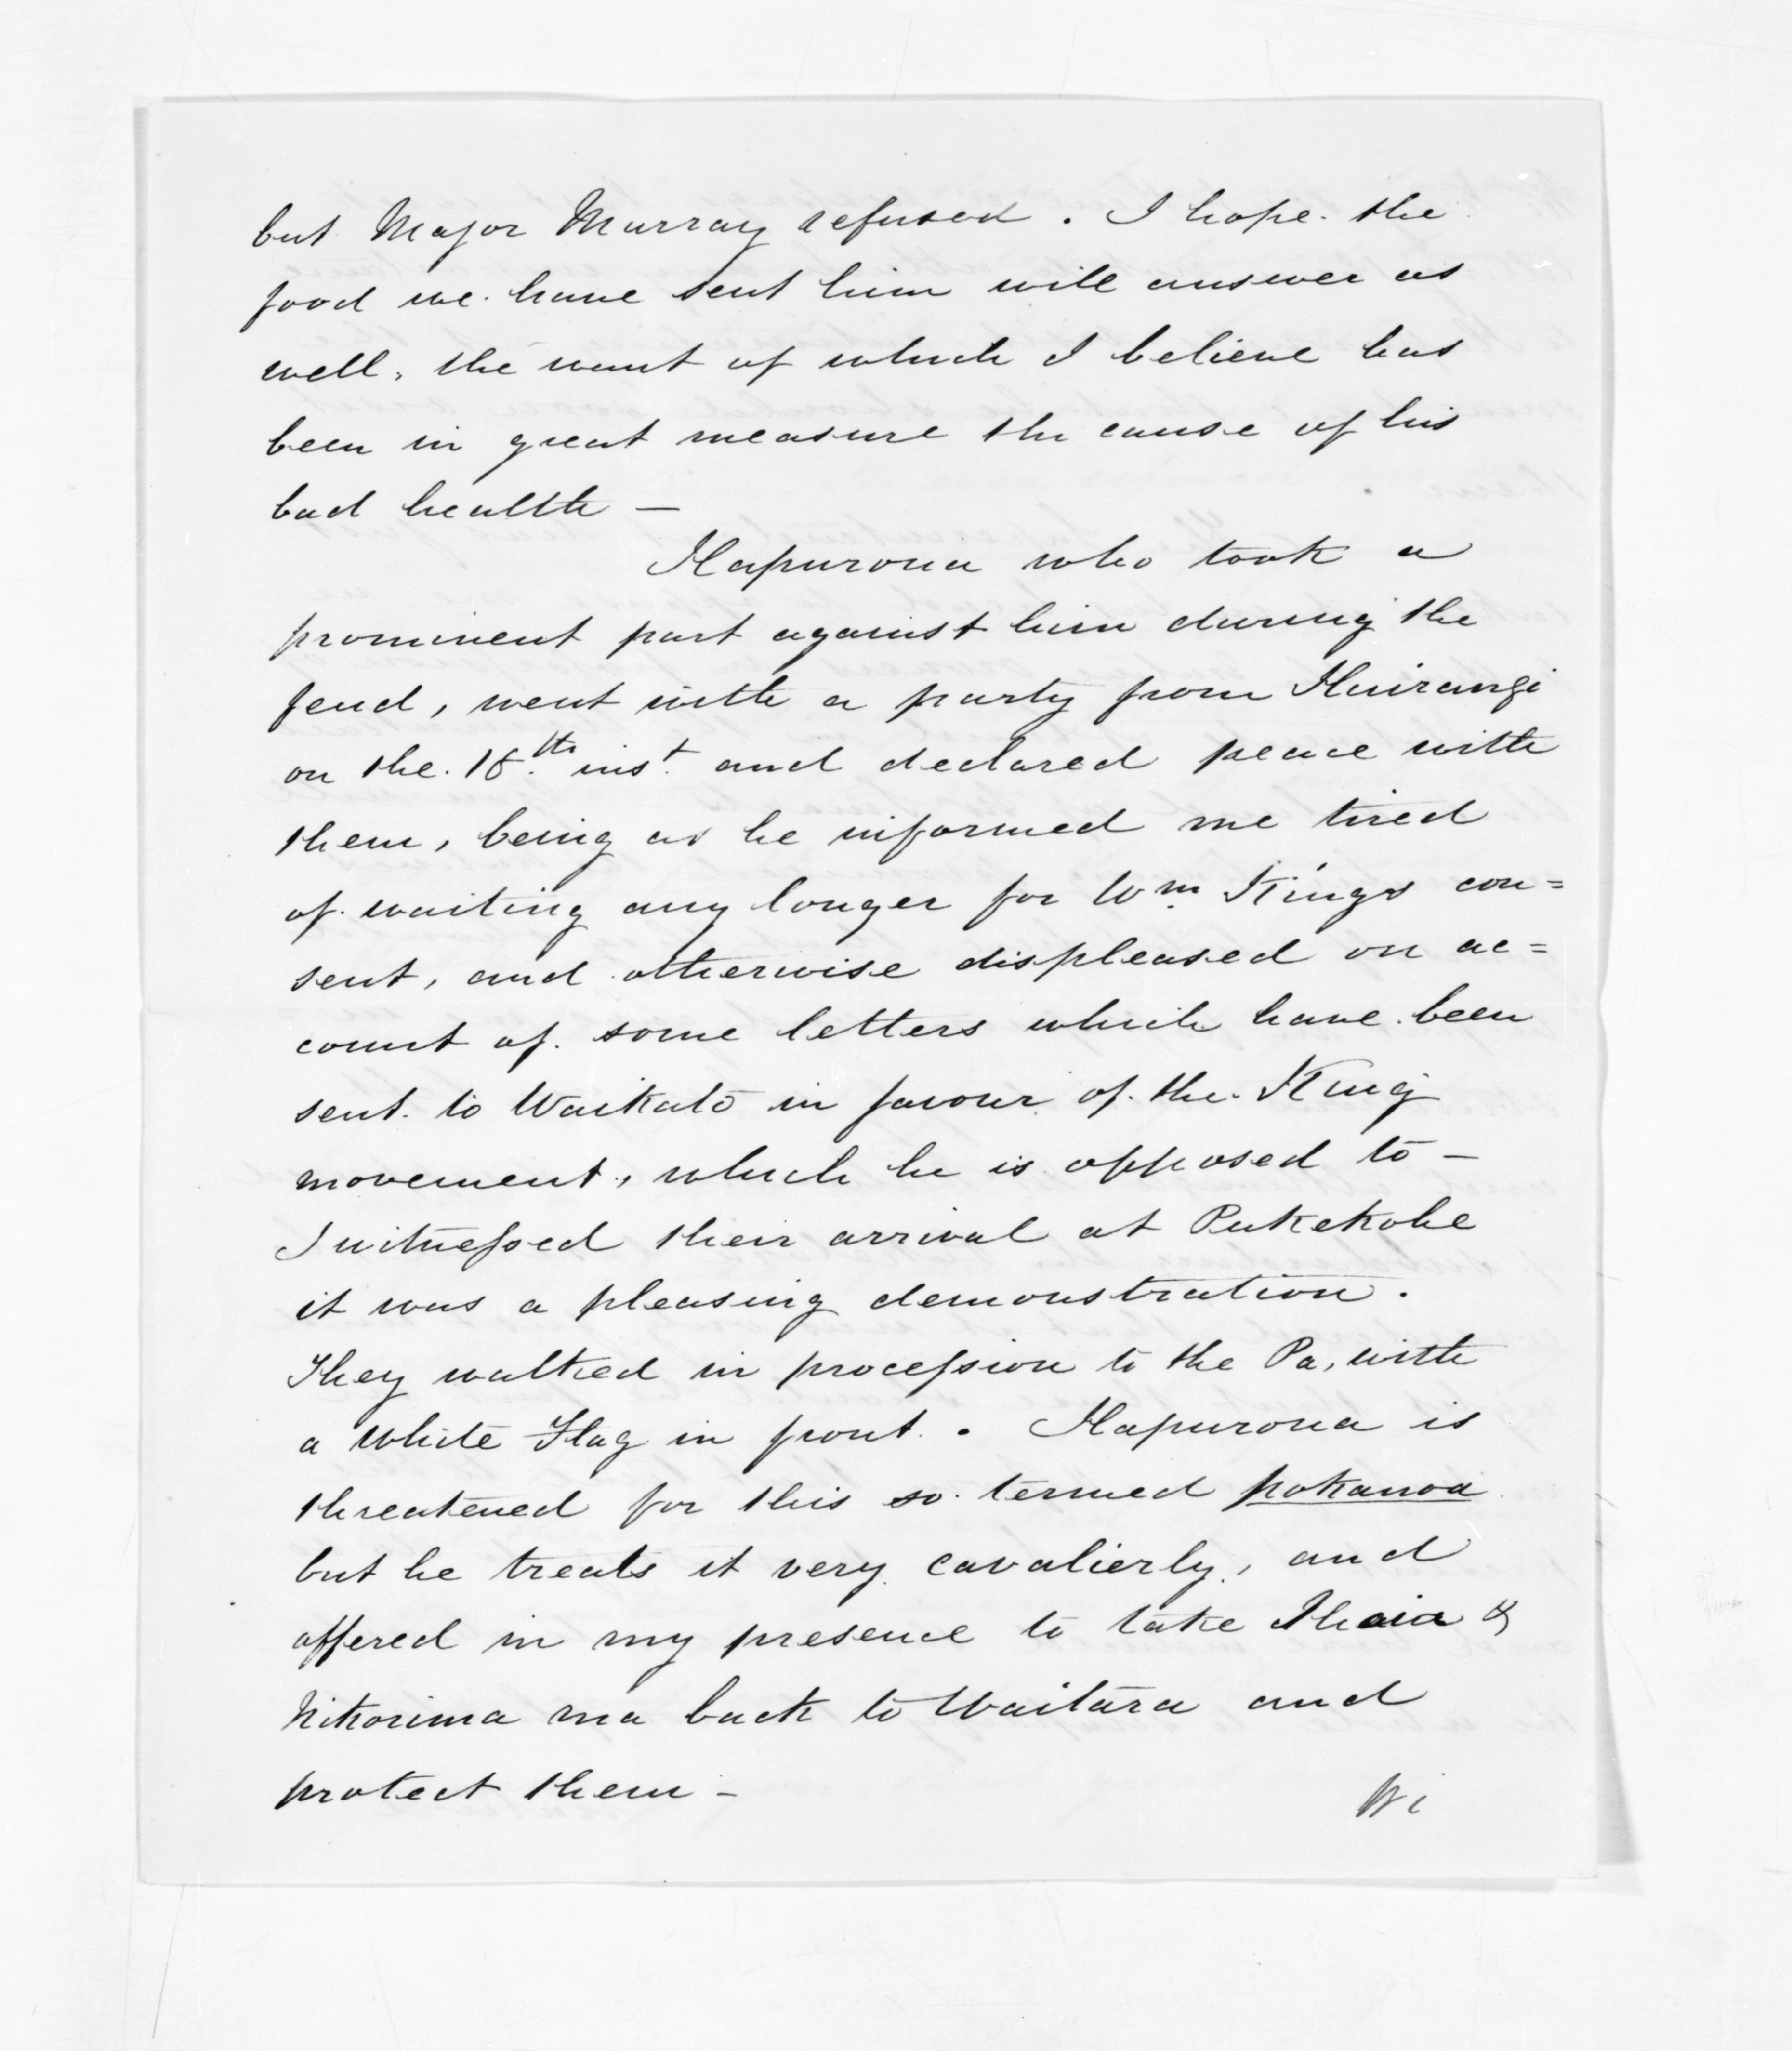 but Major Murray refused. I hope the
food we have sent him will answer as
well, the want of which I believe has
been in great measure the cause of his
bad health —
Hapurona who took a
prominent part against him during the
feud, went with a party from Huirangi
on the 18th. inst. and declared peace with
them, being as he informed me tired
of waiting any longer for Wm. King's con=
sent, and otherwise displeased on ac=
count of some letters which have been
sent to Waikato in favour of the King
movement, which he is opposed to —
I witnessed their arrival at Pukekohe
it was a pleasing demonstration.
They walked in procession to the Pa, with
a White Flag in front. Hapurona is
threatened for this so termed pokanoa
but he treats it very cavalierly, and
offered in my presence to take Ihaia &
Nikorima ma back to Waitara and
protect them —
Wi